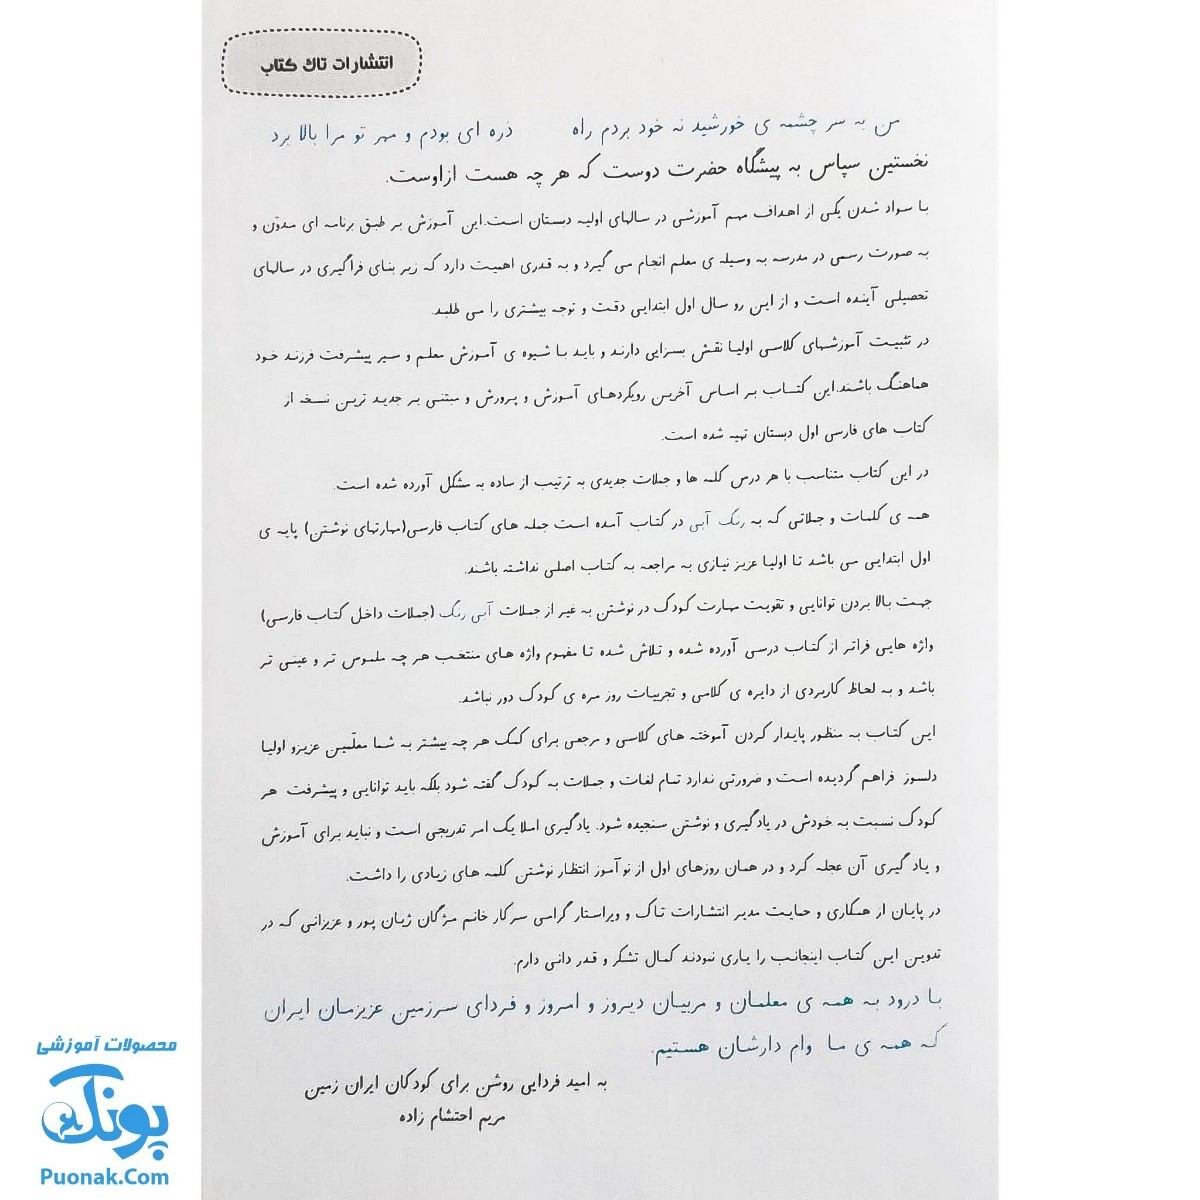 انتشارات تاک کتاب
من به سر چشمه ی خورشید نه خود بردم راه ذره ای بودم و مهر تو مرا بالا برد
نخستین سپاس به پیشگاه حضرت دوست که هر چه هست ازاوست.
با سواد شدن یکی از اهداف مهم آموزشی در سالهای اولیه دبستان است.این آموزش بر طبق برنامه ای مدوّن و
به صورت رسمی در مدرسه به وسیله ی معلم انجام می گیرد و به قدری اهمیت دارد که زیر بنای فراگیری در سالهای
تحصیلی آینده است و از این رو سال اول ابتدایی دقت و توجه بیشتری را می طلبد.
در تثبیت آموزشهای کلاسی اولیا نقش بسزایی دارند و باید با شیوه ی آموزش معلم و سیر پیشرفت فرزند خود
هماهنگ باشند.این کتاب بر اساس آخرین رویکردهای آموزش و پرورش و مبتنی بر جدید ترین نسخه از
کتاب های فارسی اول دبستان تهیه شده است.
در این کتاب متناسب با هر درس کلمه ها و جملات جدیدی به ترتیب از ساده به مشکل آورده شده است.
همه ی کلمات و جملاتی که به رنگ آبی در کتاب آمده است جمله های کتاب فارسی(مهارتهای نوشتن) پایه ی
اول ابتدایی می باشد تا اولیا عزیز نیازی به مراجعه به کتاب اصلی نداشته باشند.
جهت بالا بردن توانایی و تقویت مهارت کودک در نوشتن به غیر از جملات آبی رنگ (جملات داخل کتاب فارسی)
واژه هایی فراتر از کتاب درسی آورده شده و تلاش شده تا مفهوم واژه های منتخب هر چه ملموس تر و عینی تر
باشد و به لحاظ کاربردی از دایره ی کلامی و تجربیات روز مره ی کودک دور نباشد.
این کتاب به منظور پایدار کردن آموخته های کلاسی و مرجعی برای کمک هر چه بیشتر به شما معلّمین عزیزو اولیا
دلسوز فراهم گردیده است و ضرورتی ندارد تمام لغات و جملات به کودک گفته شود بلکه باید توانایی و پیشرفت هر
کودک نسبت به خودش در یادگیری و نوشتن سنجیده شود. یادگیری املا یک امر تدریجی است و نباید برای آموزش
و یاد گیری آن عجله کرد و در همان روزهای اول از نو آموز انتظار نوشتن کلمه های زیادی را داشت.
در پایان از همکاری و حمایت مدیر انتشارات تاک و ویراستار گرامی سرکار خانم مژگان ژیان پور و عزیزانی که در
تدوین این کتاب اینجانب را یاری نمودند کمال تشکر و قدر دانی دارم.
با درود به همه ی معلمان و مربیان دیروز و امروز و فردای سرزمین عزیزمان ایران
که همه ی ما وام دارشان هستیم.
به امید فردایی روشن برای کودکان ایران زمین
مریم احتشام زاده
محصولات آموزشی
پونک
Puonak.Com